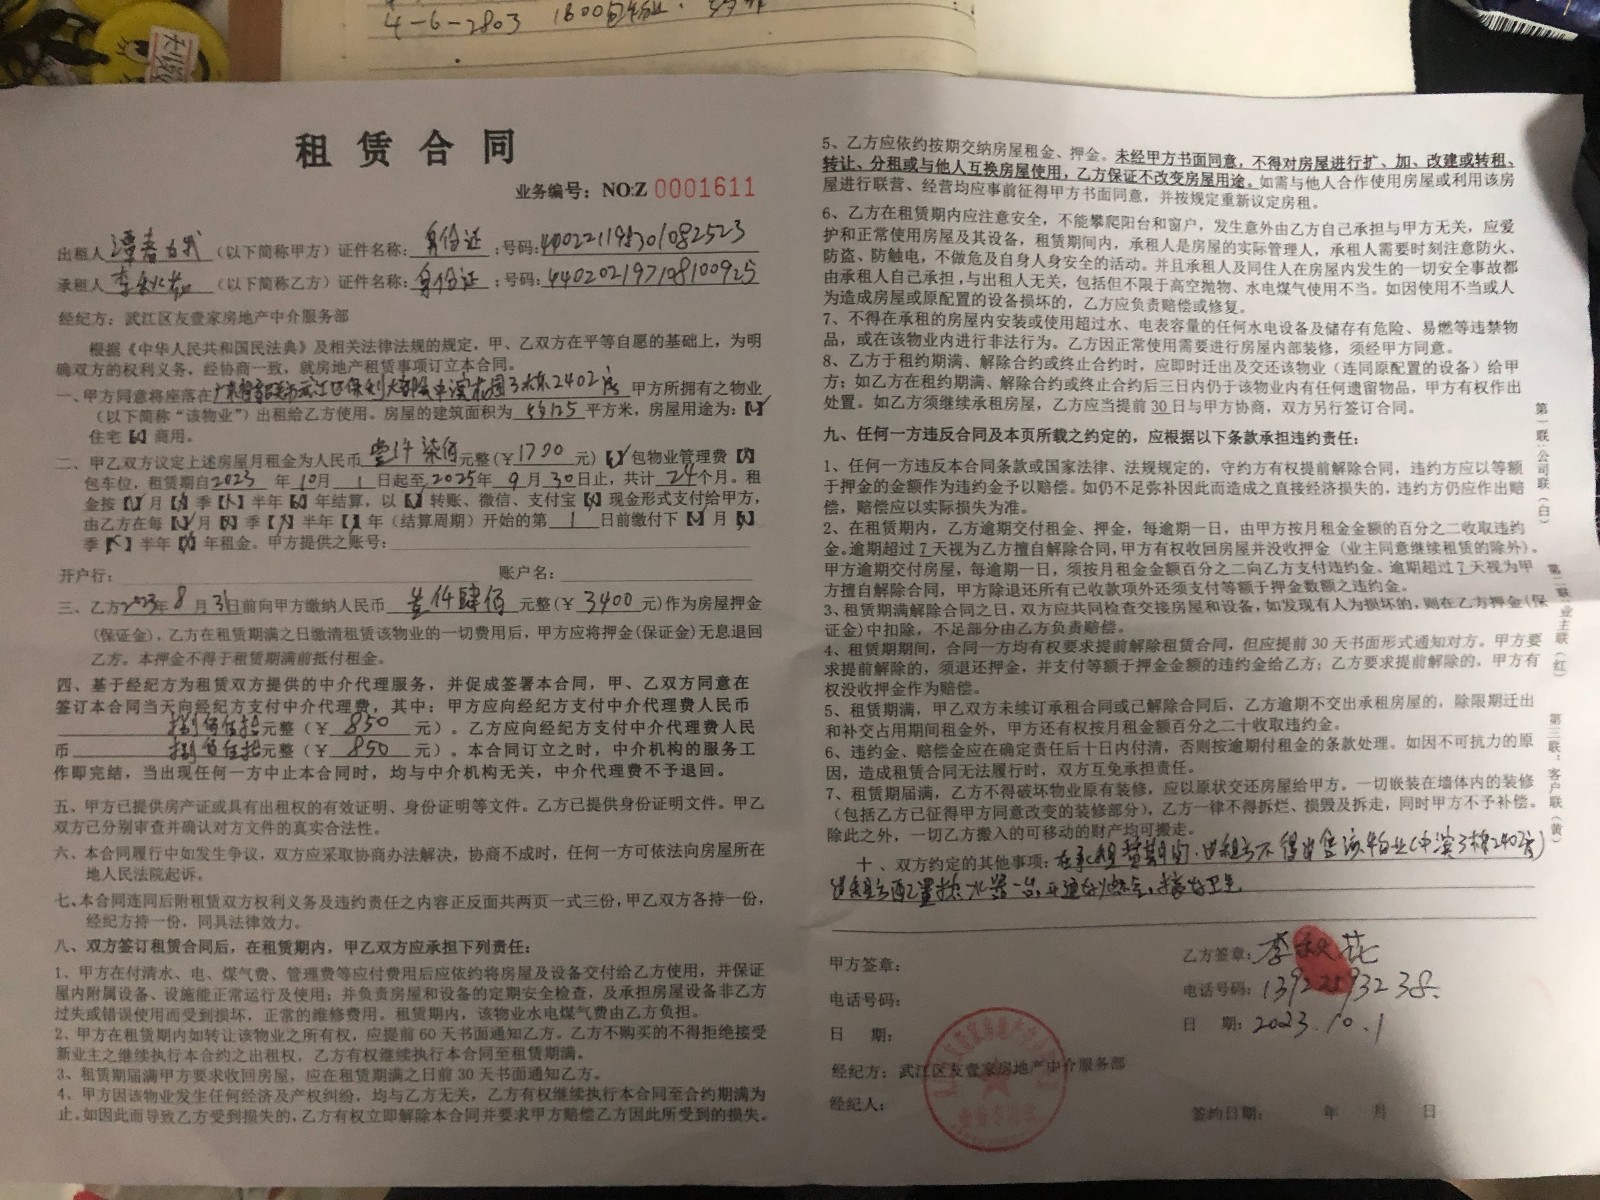 4-6-2803 1800包物业.
租赁合同
业务编号：NO:Z 0001611
出租人 谭春 （以下简称甲方）证件名称：身份证；号码：440221195301082523
承租人 李秋花 （以下简称乙方）证件名称：身份证；号码：440202197108100925
经纪方：武江区友壹家房地产中介服务部
根据《中华人民共和国民法典》及相关法律法规的规定，甲、乙双方在平等自愿的基础上，为明
确双方的权利义务，经协商一致，就房地产租赁事项订立本合同。
一、甲方同意将座落在广东省韶关市武江区保利大都会中滨花园3栋2402房 甲方所拥有之物业
（以下简称“该物业”）出租给乙方使用。房屋的建筑面积为 平方米，房屋用途为：【✓】
住宅【】商用。
二、甲乙双方议定上述房屋月租金为人民币 壹仟柒佰元整（￥1700 元）【✓】包物业管理费【】
包车位，租赁期自2023 年 10月 1 日起至 2025年 9 月 30日止，共计 24个月。租
金按【✓】月【】季【】半年【】年结算，以【✓】转账、微信、支付宝【】现金形式支付给甲方，
由乙方在每【✓】月【】季【】半年【】年（结算周期）开始的第 1 日前缴付下【✓】月【】
季【】半年【】年租金。甲方提供之账号：
开户行： 账户名：
三、乙方2023年 8 月 31日前向甲方缴纳人民币 叁仟肆佰 元整（￥ 3400 元）作为房屋押金
（保证金），乙方在租赁期满之日缴清租赁该物业的一切费用后，甲方应将押金(保证金)无息退回
乙方。本押金不得于租赁期满前抵付租金。
四、基于经纪方为租赁双方提供的中介代理服务，并促成签署本合同，甲、乙双方同意在
签订本合同当天向经纪方支付中介代理费，其中：甲方应向经纪方支付中介代理费人民币
捌佰伍拾元整（￥ 850 元）。乙方应向经纪方支付中介代理费人民
币 捌佰伍拾元整（￥ 850 元）。本合同订立之时，中介机构的服务工
作即完结，当出现任何一方中止本合同时，均与中介机构无关，中介代理费不予退回。
五、甲方已提供房产证或具有出租权的有效证明、身份证明等文件。乙方已提供身份证明文件。甲乙
双方已分别审查并确认对方文件的真实合法性。
六、本合同履行中如发生争议，双方应采取协商办法解决，协商不成时，任何一方可依法向房屋所在
地人民法院起诉。
七、本合同连同后附租赁双方权利义务及违约责任之内容正反面共两页一式三份，甲乙双方各持一份，
经纪方持一份，同具法律效力。
八、双方签订租赁合同后，在租赁期内，甲乙双方应承担下列责任：
1、甲方在付清水、电、煤气费、管理费等应付费用后应依约将房屋及设备交付给乙方使用，并保证
屋内附属设备、设施能正常运行及使用；并负责房屋和设备的定期安全检查，及承担房屋设备非乙方
过失或错误使用而受到损坏，正常的维修费用。租赁期内，该物业水电煤气费由乙方负担。
2、甲方在租赁期内如转让该物业之所有权，应提前60天书面通知乙方。乙方不购买的不得拒绝接受
新业主之继续执行本合约之出租权，乙方有权继续执行本合同至租赁期满。
3、租赁期届满甲方要求收回房屋，应在租赁期满之日前30天书面通知乙方。
4、甲方因该物业发生任何经济及产权纠纷，均与乙方无关，乙方有权继续执行本合同至合约期满为
止。如因此而导致乙方受到损失的，乙方有权立即解除本合同并要求甲方赔偿乙方因此所受到的损失。
5、乙方应依约按期交纳房屋租金、押金。未经甲方书面同意，不得对房屋进行扩、加、改建或转租、
转让、分租或与他人互换房屋使用，乙方保证不改变房屋用途。如需与他人合作使用房屋或利用该房
屋进行联营、经营均应事前征得甲方书面同意，并按规定重新议定房租。
6、乙方在租赁期内应注意安全，不能攀爬阳台和窗户，发生意外由乙方自己承担与甲方无关，应爱
护和正常使用房屋及其设备，租赁期间内，承租人是房屋的实际管理人，承租人需要时刻注意防火、
防盗、防触电，不做危及自身人身安全的活动。并且承租人及同住人在房屋内发生的一切安全事故都
由承租人自己承担，与出租人无关，包括但不限于高空抛物、水电煤气使用不当。如因使用不当或人
为造成房屋或原配置的设备损坏的，乙方应负责赔偿或修复。
7、不得在承租的房屋内安装或使用超过水、电表容量的任何水电设备及储存有危险、易燃等违禁物
品，或在该物业内进行非法行为。乙方因正常使用需要进行房屋内部装修，须经甲方同意。
8、乙方于租约期满、解除合约或终止合约时，应即时迁出及交还该物业（连同原配置的设备）给甲
方；如乙方在租约期满、解除合约或终止合约后三日内仍于该物业内有任何遗留物品，甲方有权作出
处置。如乙方须继续承租房屋，乙方应当提前30日与甲方协商，双方另行签订合同。
九、任何一方违反合同及本页所载之约定的，应根据以下条款承担违约责任：
1、任何一方违反本合同条款或国家法律、法规规定的，守约方有权提前解除合同，违约方应以等额
于押金的金额作为违约金予以赔偿。如仍不足弥补因此而造成之直接经济损失的，违约方仍应作出赔
偿，赔偿应以实际损失为准。
2、在租赁期内，乙方逾期交付租金、押金，每逾期一日，由甲方按月租金金额的百分之二收取违约
金。逾期超过7天视为乙方擅自解除合同，甲方有权收回房屋并没收押金（业主同意继续租赁的除外）。
甲方逾期交付房屋，每逾期一日，须按月租金金额百分之二向乙方支付违约金、逾期超过7天视为甲
方擅自解除合同，甲方除退还所有已收款项外还须支付等额于押金数额之违约金。
3、租赁期满解除合同之日，双方应共同检查交接房屋和设备，如发现有人为损坏的，则在乙方押金(保
证金)中扣除，不足部分由乙方负责赔偿。
4、租赁期期间，合同一方均有权要求提前解除租赁合同，但应提前30天书面形式通知对方。甲方要
求提前解除的，须退还押金，并支付等额于押金金额的违约金给乙方；乙方要求提前解除的，甲方有
权没收押金作为赔偿。
5、租赁期满，甲乙双方未续订承租合同或已解除合同后，乙方逾期不交出承租房屋的，除限期迁出
和补交占用期间租金外，甲方还有权按月租金额百分之二十收取违约金。
6、违约金、赔偿金应在确定责任后十日内付清，否则按逾期付租金的条款处理。如因不可抗力的原
因，造成租赁合同无法履行时，双方互免承担责任。
7、租赁期届满，乙方不得破坏物业原有装修，应以原状交还房屋给甲方。一切嵌装在墙体内的装修
（包括乙方已征得甲方同意改变的装修部分），乙方一律不得拆烂、损毁及拆走，同时甲方不予补偿。
除此之外，一切乙方搬入的可移动的财产均可搬走。
十、双方约定的其他事项：在承租赁期间，出租方不得出售该物业（中滨3栋2402房）
出租方配置热水器一台，开通好燃气，搞好卫生
甲方签章：
电话号码：
日 期：
经纪方：武江区友壹家房地产中介服务部
经纪人：
乙方签章：李秋花
电话号码：13922593238.
日 期：2023.10.1
签约日期： 年 月 日
第一联：公司联（白）
第二联：业主联（红）
第三联：客户联（黄）